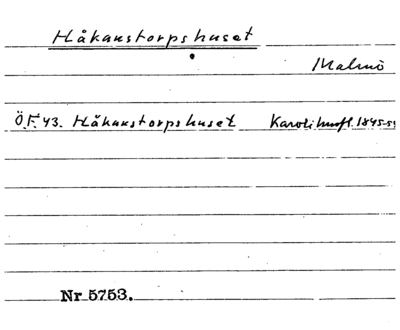 Håkanstorpshuset
Malmö
Ö.F. 43. Håkanstorpshuset Karoli husfl. 1845-55
Nr 5753.